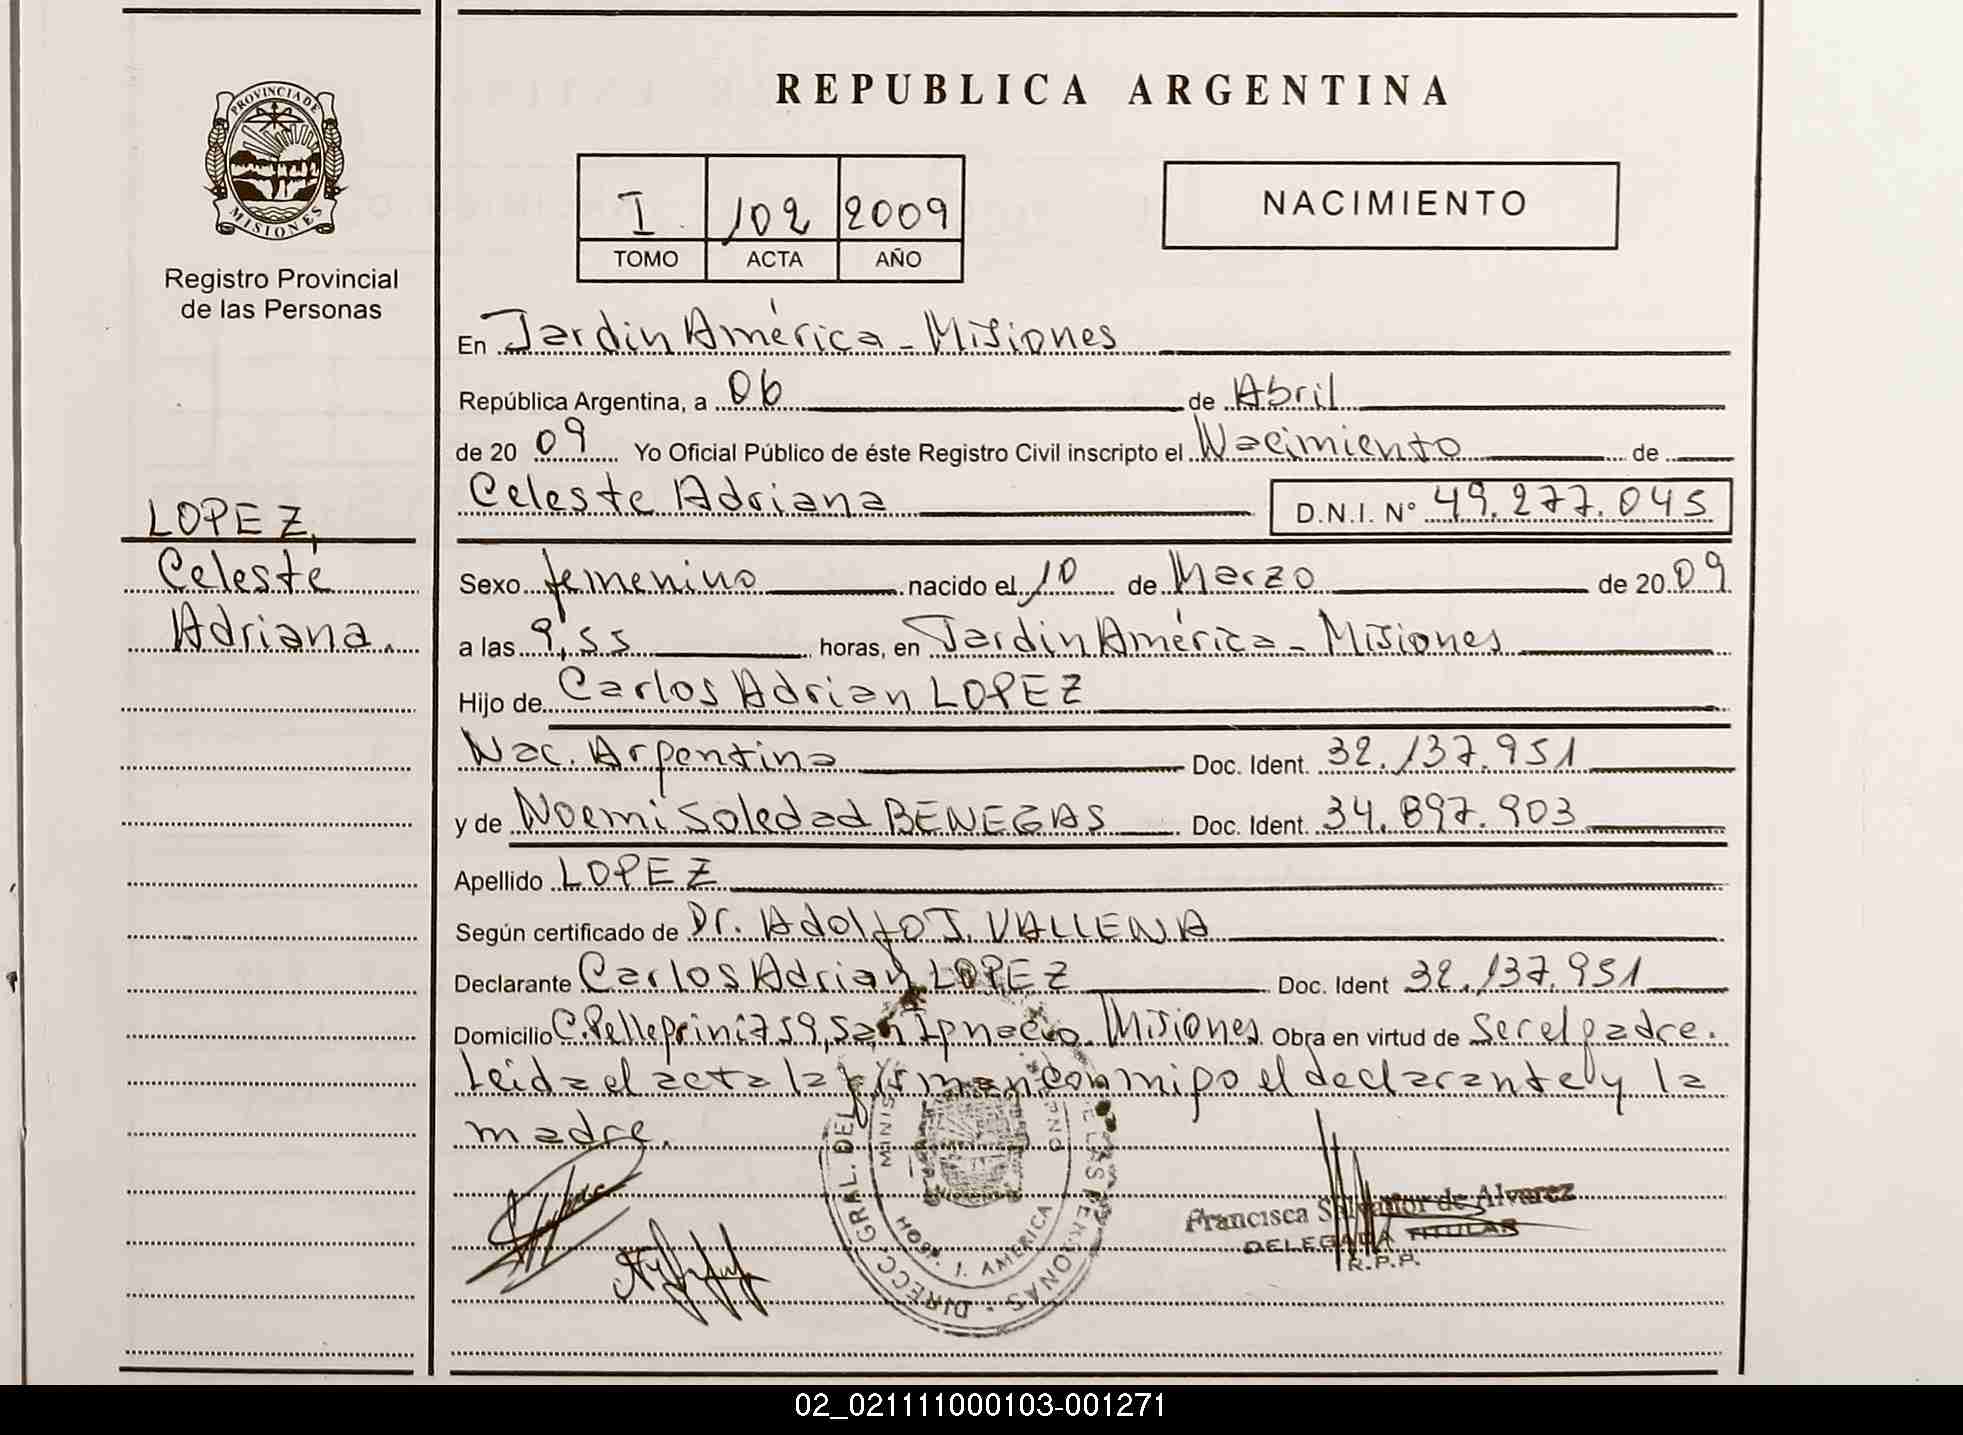 PROVINCIA DE
MISIONES
Registro Provincial
de las Personas
LOPEZ,
Celeste
Adriana.
REPUBLICA ARGENTINA
I 102 2009
TOMO ACTA AÑO
NACIMIENTO
En Jardin América - Misiones
República Argentina, a 06 de Abril
de 2009 Yo Oficial Público de éste Registro Civil inscripto el Nacimiento de
Celeste Adriana D.N.I. N° 49.277.045
Sexo femenino nacido el 10 de Marzo de 2009
a las 9,55 horas, en Jardin América - Misiones
Hijo de Carlos Adrian LOPEZ
Nac. Argentina Doc. Ident. 32.137.951
y de Noemi Soledad BENEGAS Doc. Ident. 34.897.903
Apellido LOPEZ
Según certificado de Dr. Adolfo J. VALLENA
Declarante Carlos Adrian LOPEZ Doc. Ident 32.137.951
Domicilio C. Pellegrini 759, San Ignacio. Misiones Obra en virtud de Ser el padre.
Leida el acta la firman conmigo el declarante y la
madre.
DIRECC GRAL. DEL DE LAS PERSONAS
J. AMERICA
Francisca Salvador de Alvarez
DELEGADA TITULAR
R.P.P.
02_021111000103-001271